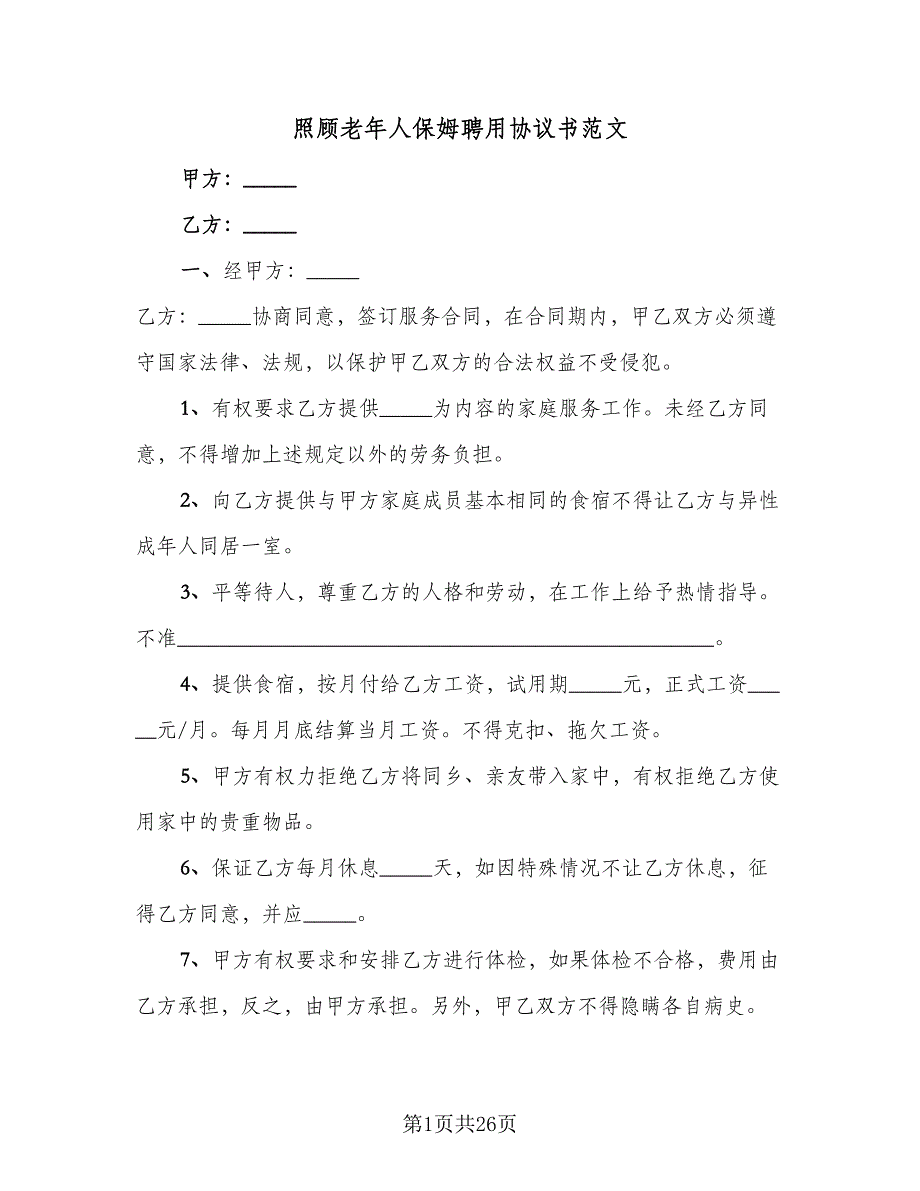 照顾老年人保姆聘用协议书范文
甲方：_____
乙方：_____
一、经甲方：_____
乙方：_____协商同意，签订服务合同，在合同期内，甲乙双方必须遵
守国家法律、法规，以保护甲乙双方的合法权益不受侵犯。
1、有权要求乙方提供_____为内容的家庭服务工作。未经乙方同
意，不得增加上述规定以外的劳务负担。
2、向乙方提供与甲方家庭成员基本相同的食宿不得让乙方与异性
成年人同居一室。
3、平等待人，尊重乙方的人格和劳动，在工作上给予热情指导。
不准___________________________________________________。
4、提供食宿，按月付给乙方工资，试用期_____元，正式工资___
__元/月。每月月底结算当月工资。不得克扣、拖欠工资。
5、甲方有权力拒绝乙方将同乡、亲友带入家中，有权拒绝乙方使
用家中的贵重物品。
6、保证乙方每月休息_____天，如因特殊情况不让乙方休息，征
得乙方同意，并应_____。
7、甲方有权要求和安排乙方进行体检，如果体检不合格，费用由
乙方承担，反之，由甲方承担。另外，甲乙双方不得隐瞒各自病史。
第1页共26页